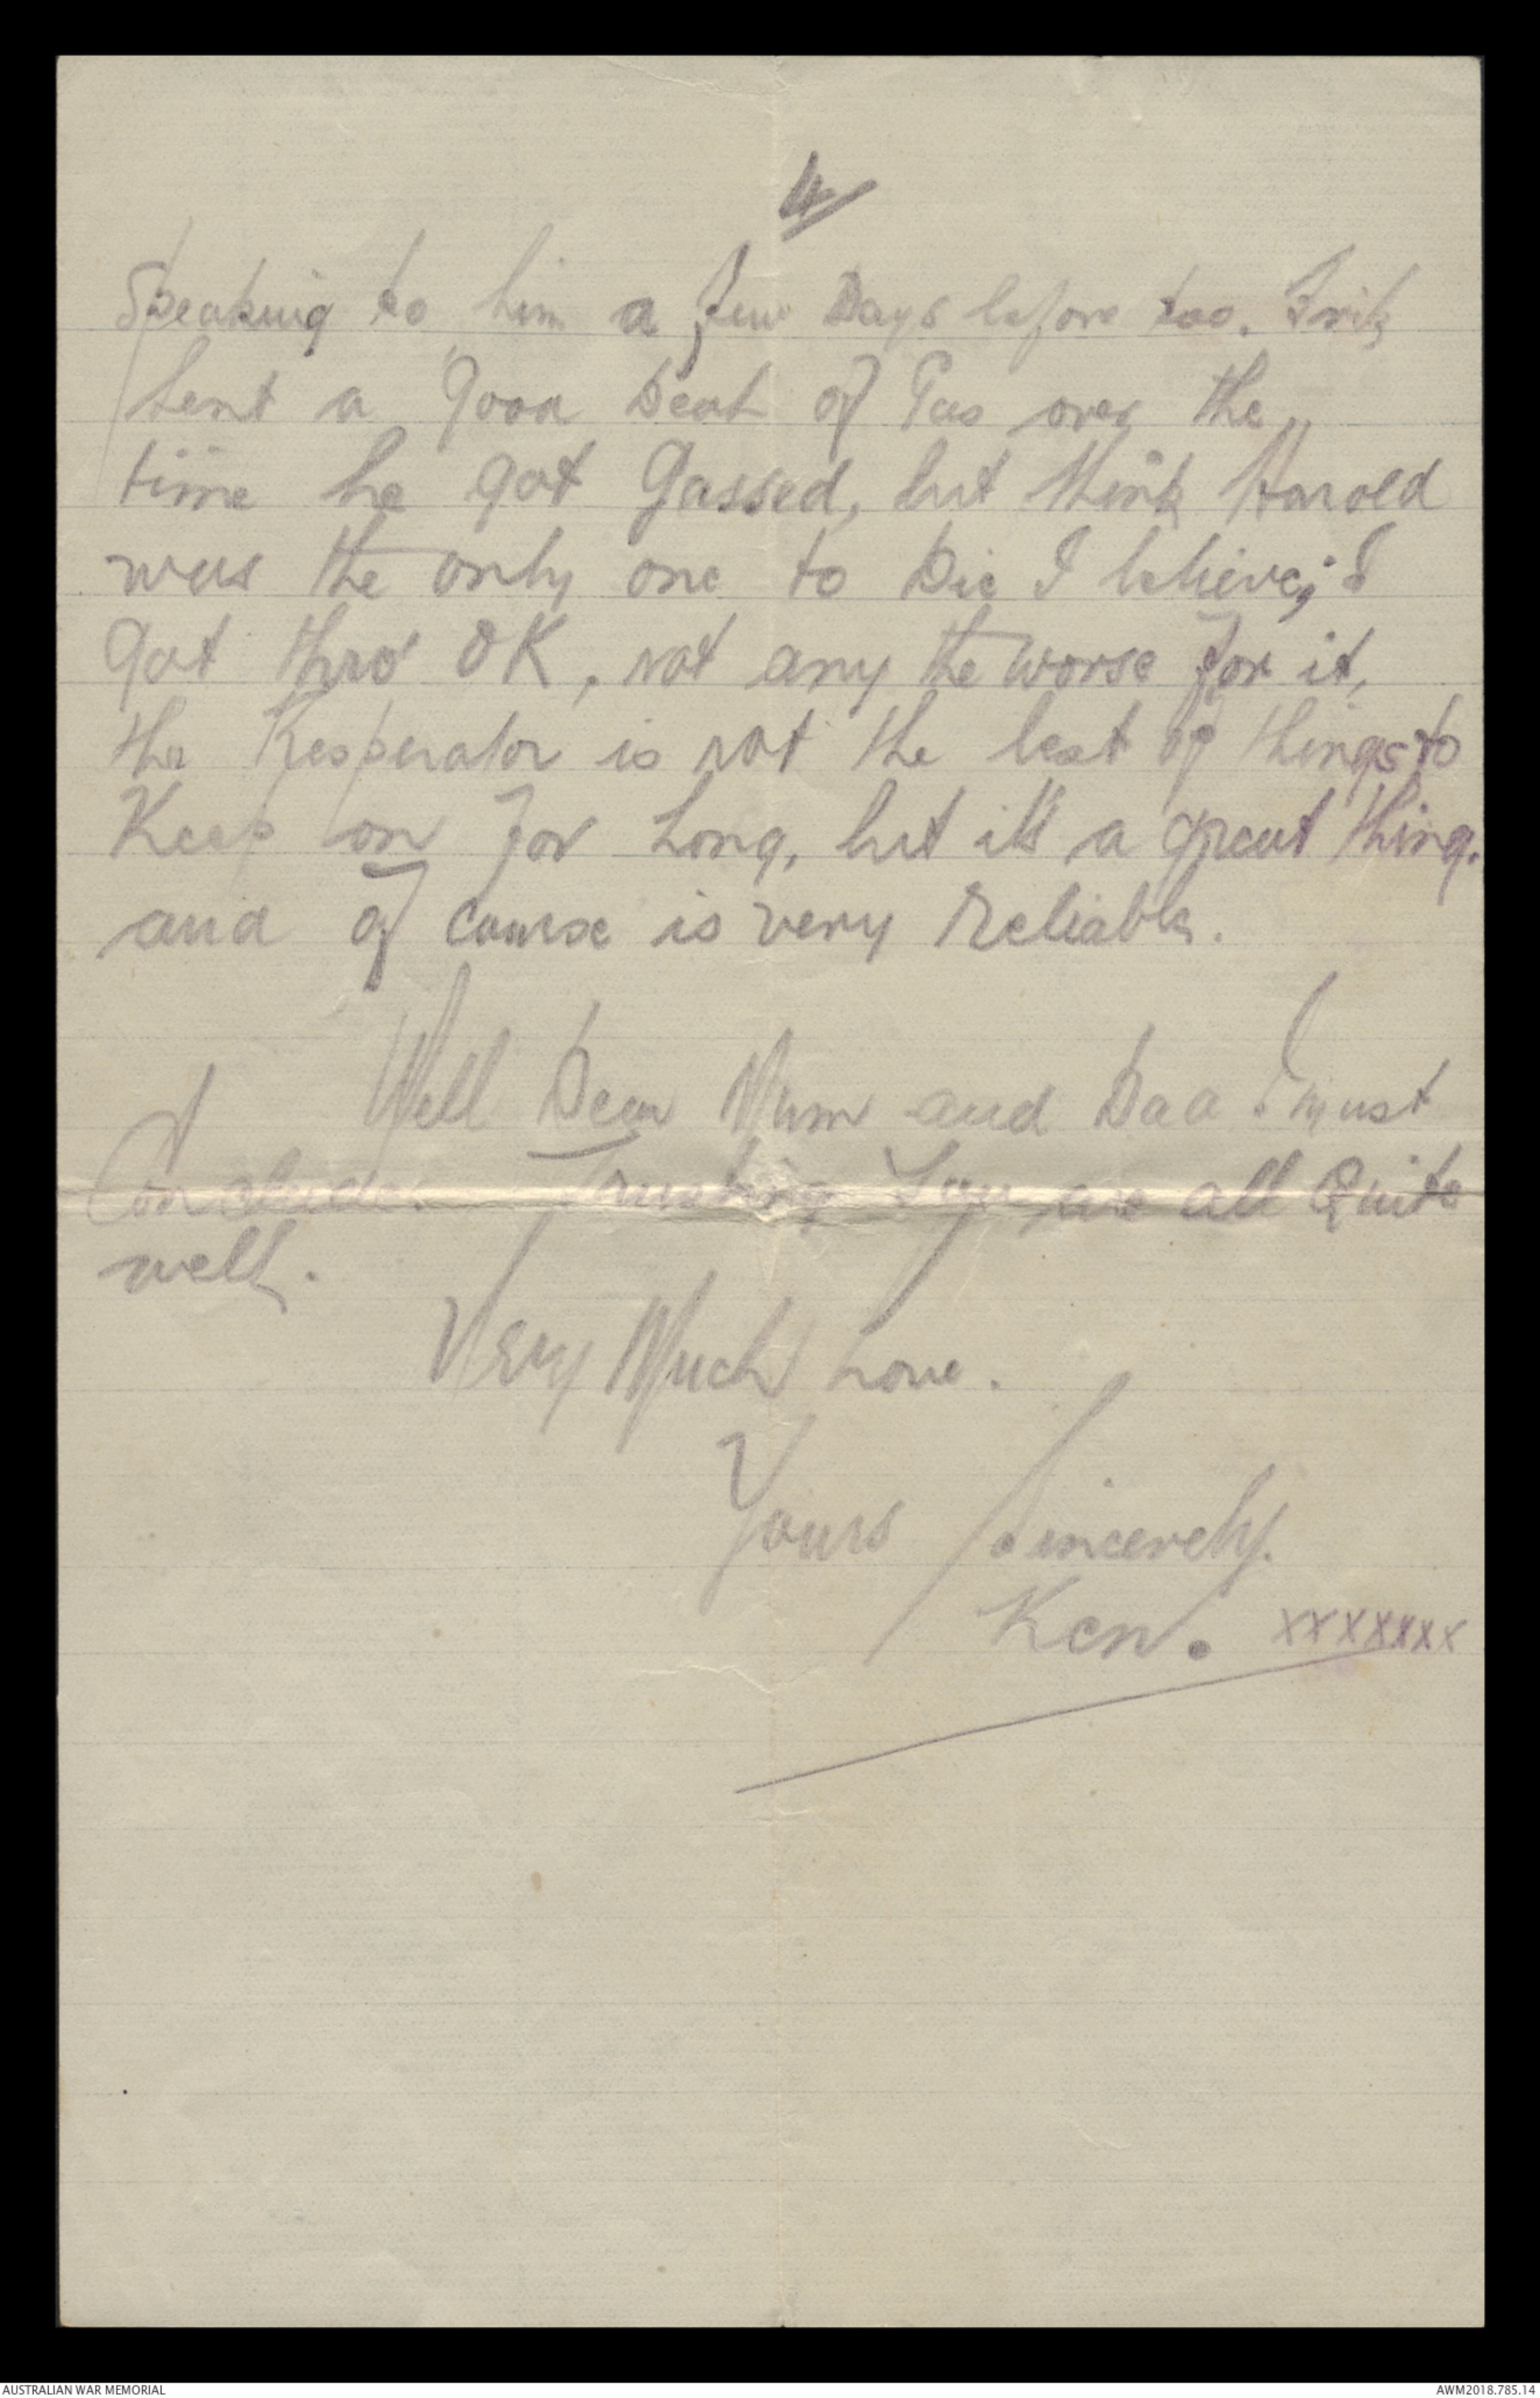 4
Speaking to him a few Days before too. Fritz
Sent a Good Deal of Gas over the
time he got Gassed, but think Harold
was the only one to Die I believe; I
Got thro' OK, not any the worse for it,
the Resperator is not the best of things to
Keep on for Long, but it's a great thing.
and of course is very Reliable.
Well Dear Mum and Dad I must
Conclude. Trusting You are all Quite
well.
Very Much Love.
Yours Sincerely.
Ken. xxxxxxx
AUSTRALIAN WAR MEMORIAL
AWM2018.785.14